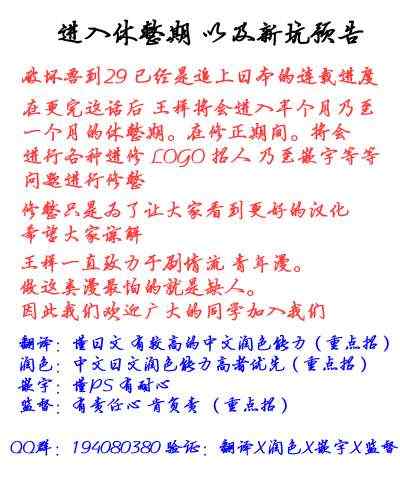 进入休整期 以及新坑预告
破坏兽到29 已经是追上日本的连载进度
在更完这话后 王样将会进入半个月乃至
一个月的休整期。在修正期间。将会
进行各种进修 LOGO 招人 乃至嵌字等等
问题进行修整
修整只是为了让大家看到更好的汉化
希望大家谅解
王样一直致力于剧情流 青年漫。
做这类漫最怕的就是缺人。
因此我们欢迎广大的同学加入我们
翻译：懂日文 有较高的中文润色能力（重点招）
润色：中文日文润色能力高者优先（重点招）
嵌字：懂PS 有耐心
监督：有责任心 肯负责 （重点招）
QQ群：194080380 验证：翻译X润色X嵌字X监督